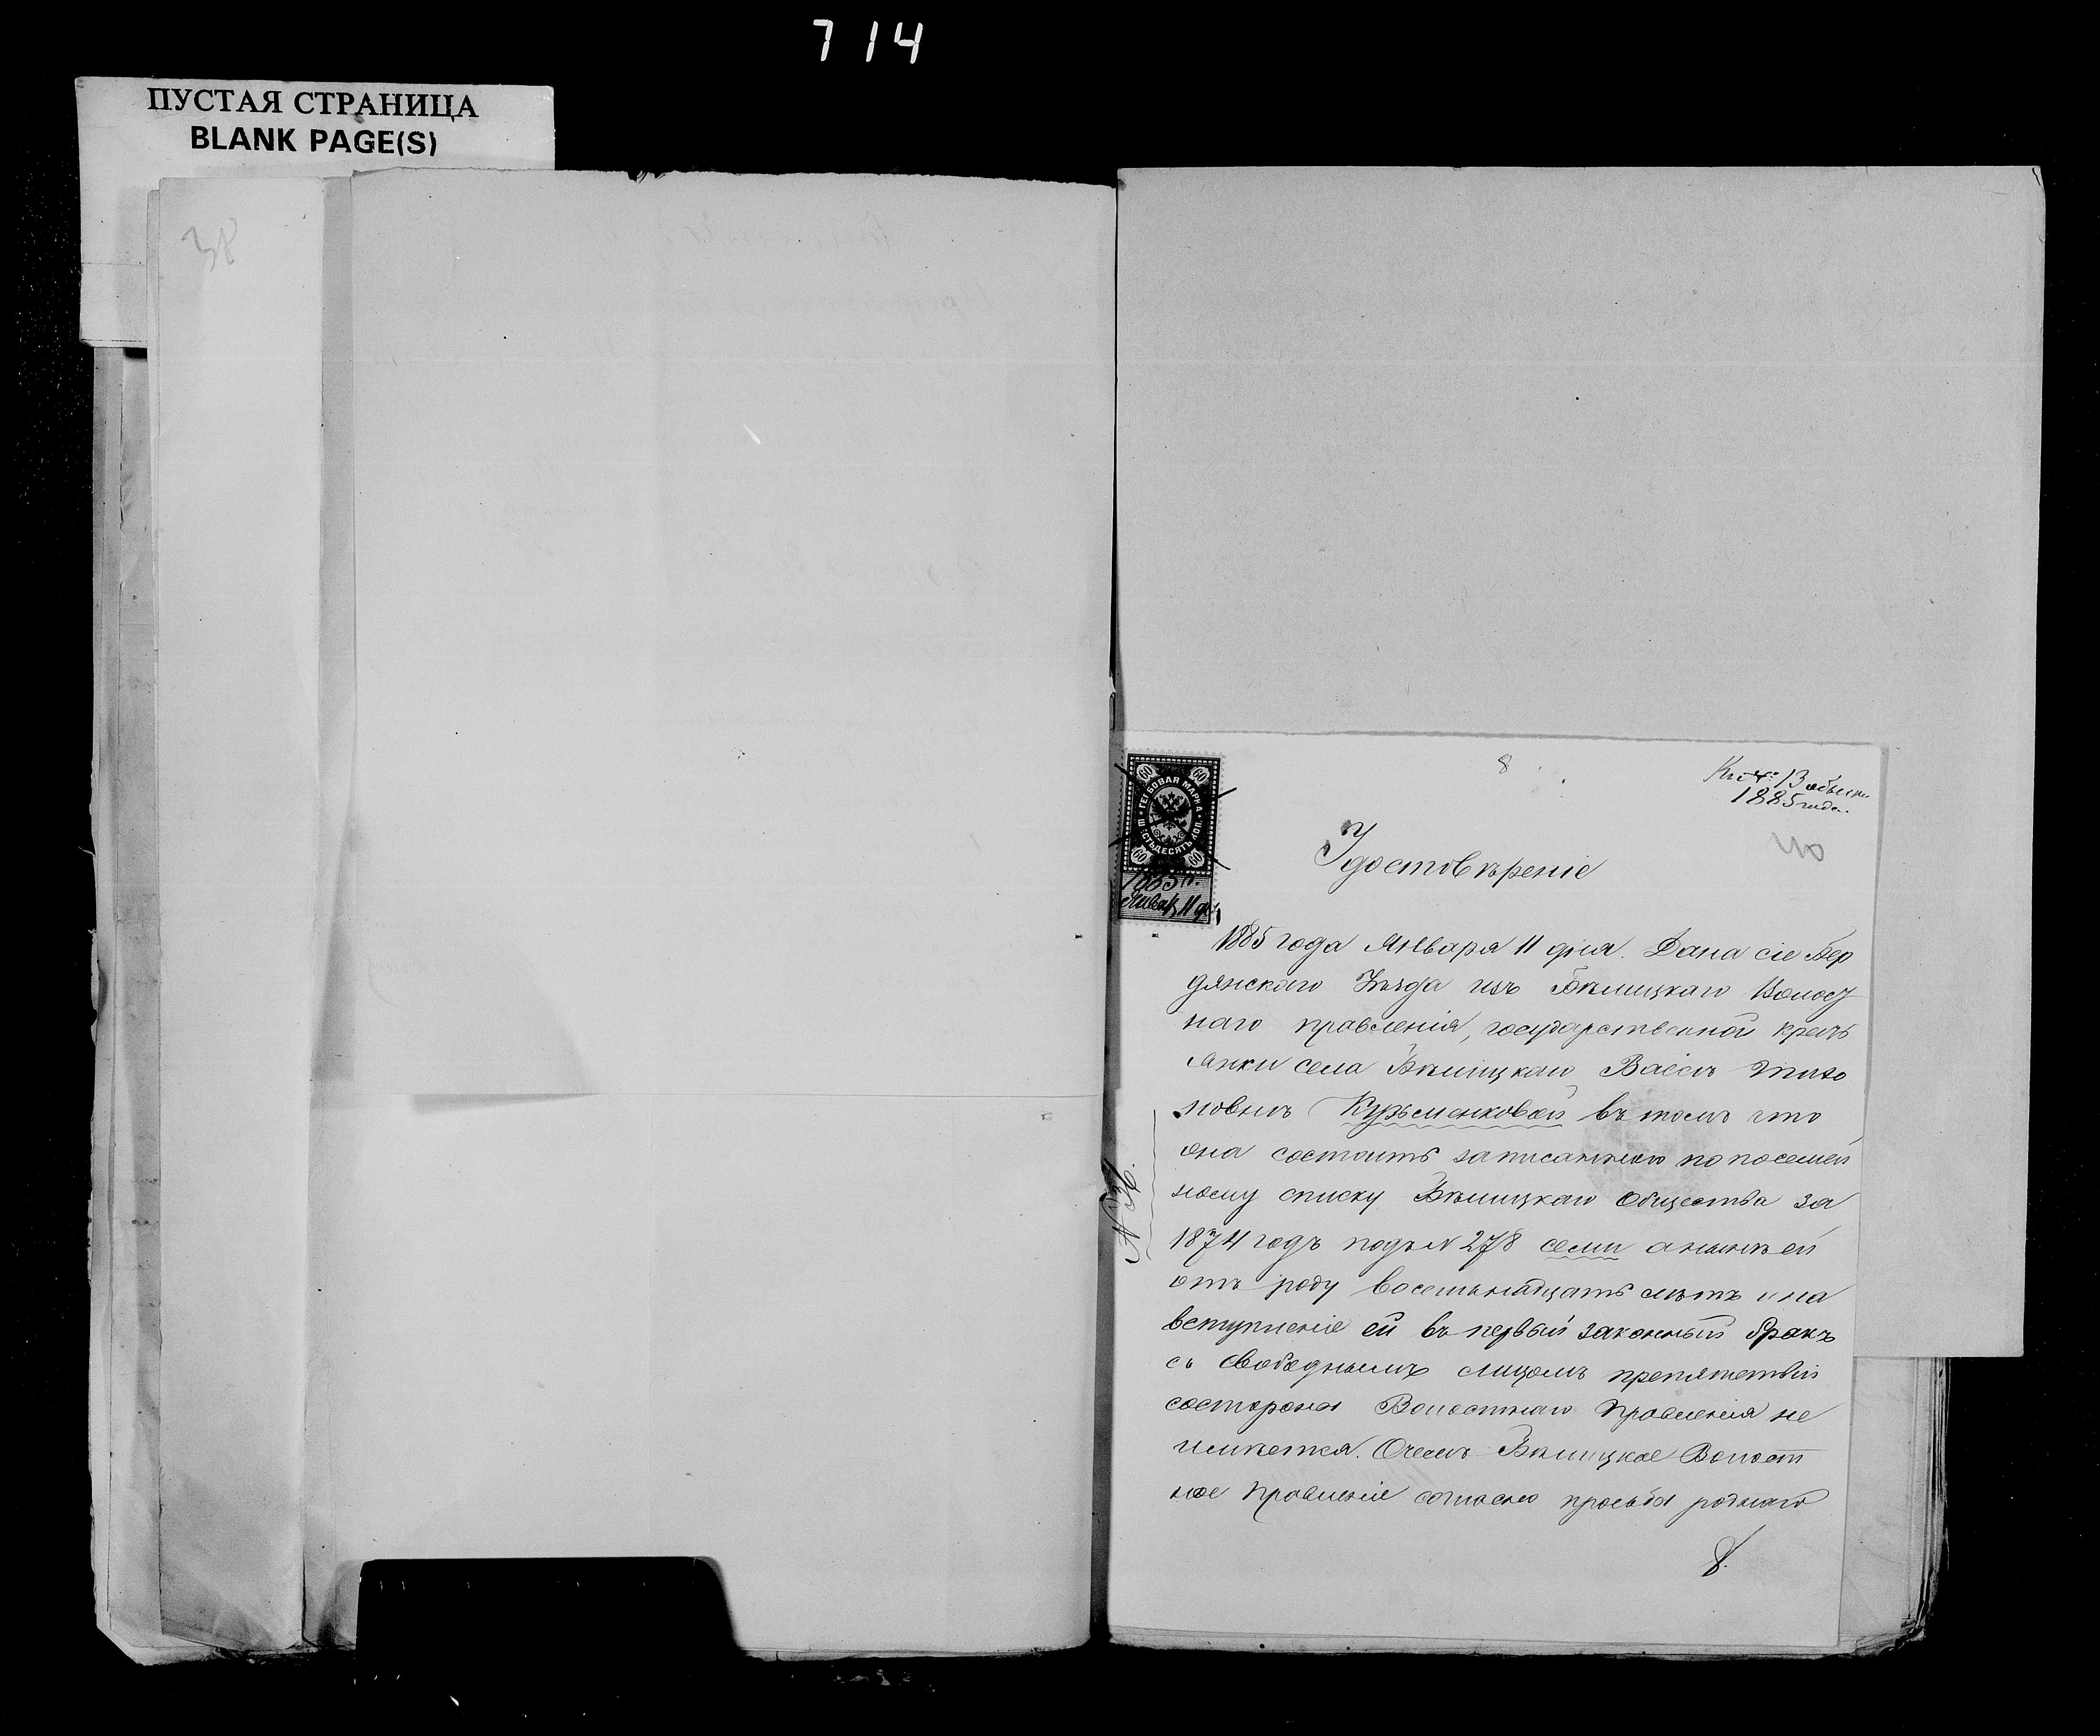 714
ПУСТАЯ СТРАНИЦА
BLANK PAGE(S)
38
8
Къ № 13 обыск.
1885 года.
40
ГЕРБОВАЯ МАРКА
ШЕСТЬДЕСЯТЪ КОП.
60 60
60 60
1885 г.
Январ. 11 дня
Удостовѣреніе
1885 года Января 11 дня. Дана сіе Бер
дянскаго Уѣзда изъ Бѣлицкаго Волост
наго правленія, государственной кресть
янки села Бѣлицкаго Вассѣ Тихо
новнѣ Кузьменковой въ томъ что
она состоитъ записанною по посемей
ному списку Бѣлицкаго Общества за
1874 годъ подъ № 278 семи а нынѣ ей
отъ роду восемьнадцать лѣтъ и на
вступленіе ей въ первый законный бракъ
съ свободнымъ лицомъ препятствій
состороны Волостнаго Правленія не
имѣется. Очемъ Бѣлицкое Волост
ное Правленіе согласно просьбы роднаго
№ 36.